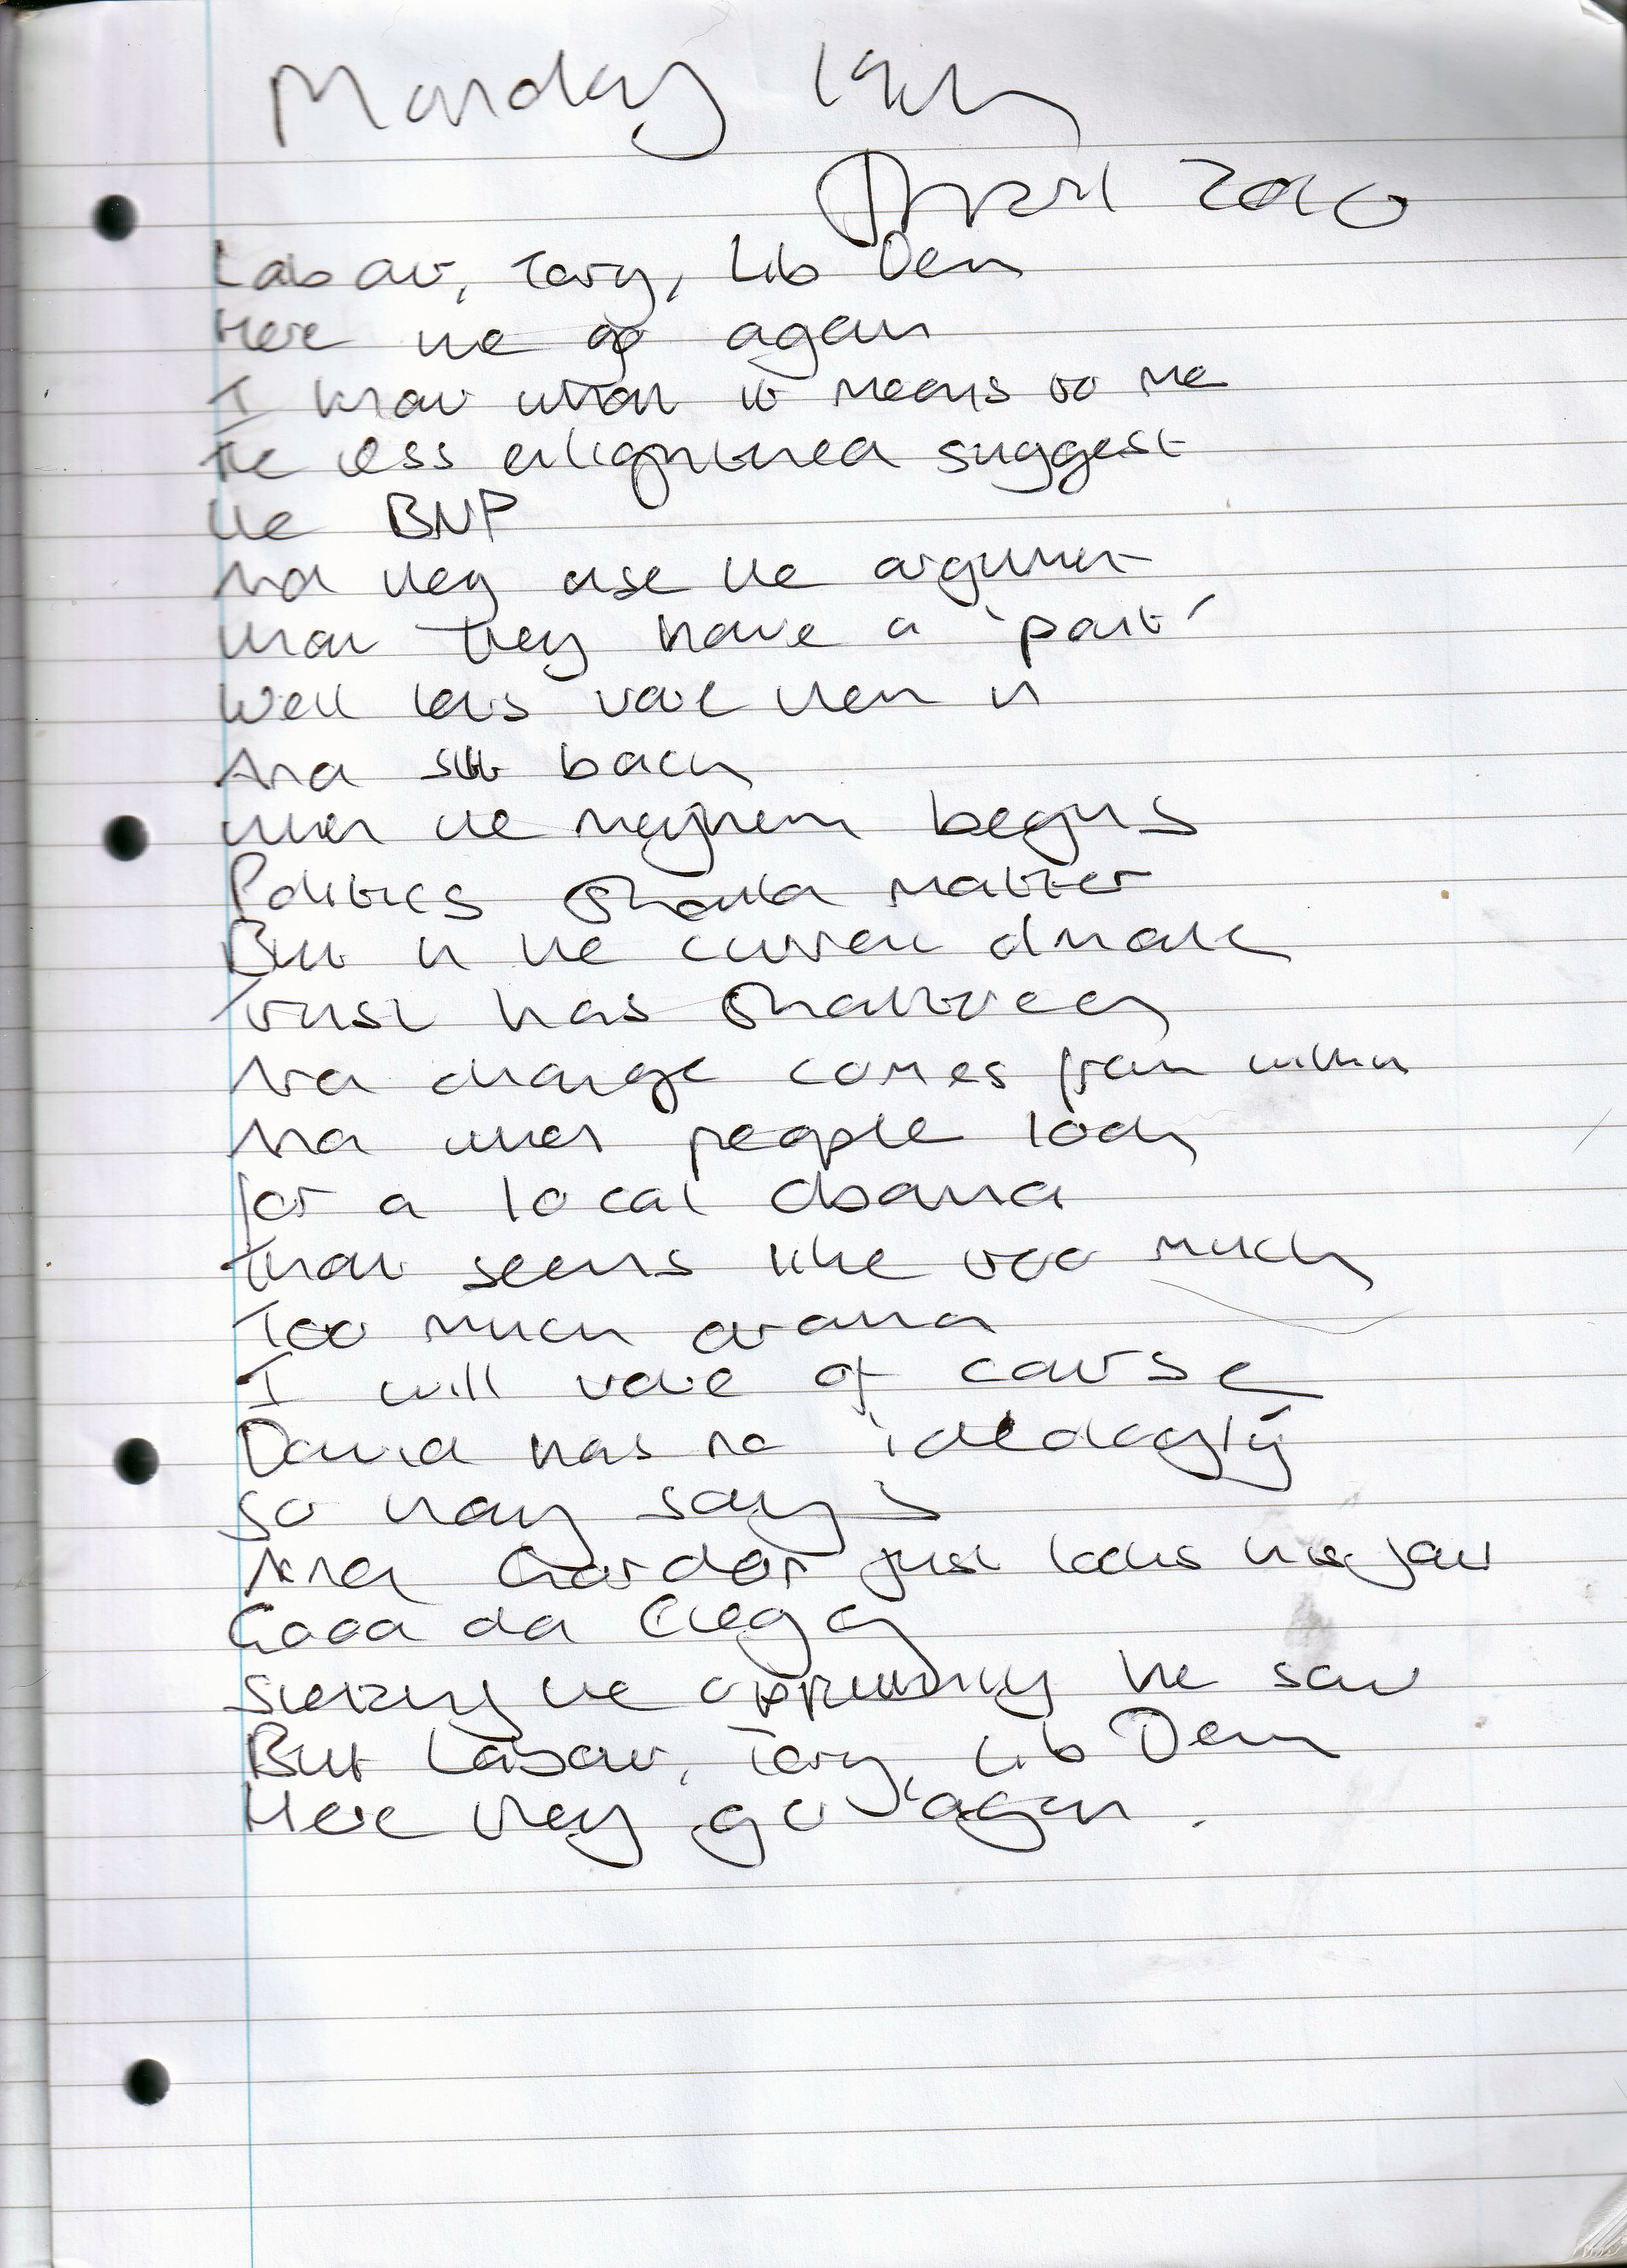 Monday 19th
April 2010
Labour, Tory, Lib Dem
Here we go again
I know what it means to me
The less enlightened suggest
the BNP
And they use the argument
that they have a 'point'
Well lets vote them in
And sit back
when the mayhem begins
Politics should matter
But in the current climate
Trust has shattered
And change comes from within
And when people look
for a local Obama
That seems like too much
Too much drama
I will vote of course
David has no ideology
so they say
And Gordon just locks his jaw
Good old Clegg
Seizing the opportunity he saw
But Labour, Tory, Lib Dem
Here they go again.